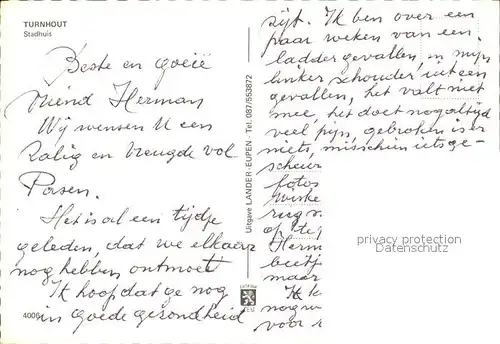 TURNHOUT
Stadhuis
Beste en goeië
vriend Herman
Wij wensen U een
Zalig en vreugde vol
Pasen.
Het is al een tijdje
geleden, dat we elkaar
nog hebben ontmoet
Ik hoop dat ge nog
in goede gezondheid
4006
Uitgave LANDER-EUPEN - Tel. 087/553872
zijt. Ik ben over een
paar weken van een
ladder gevallen, en mijn
linker schouder uit een
gevallen, het valt niet
mee, het doet nog altijd
veel pijn, gebroken is er
niets, misschien iets ge-
scheur
fotos
Wirke
rug
op te
Herm
beetj
maar
Ik k
nog
voor
privacy protection
Datenschutz